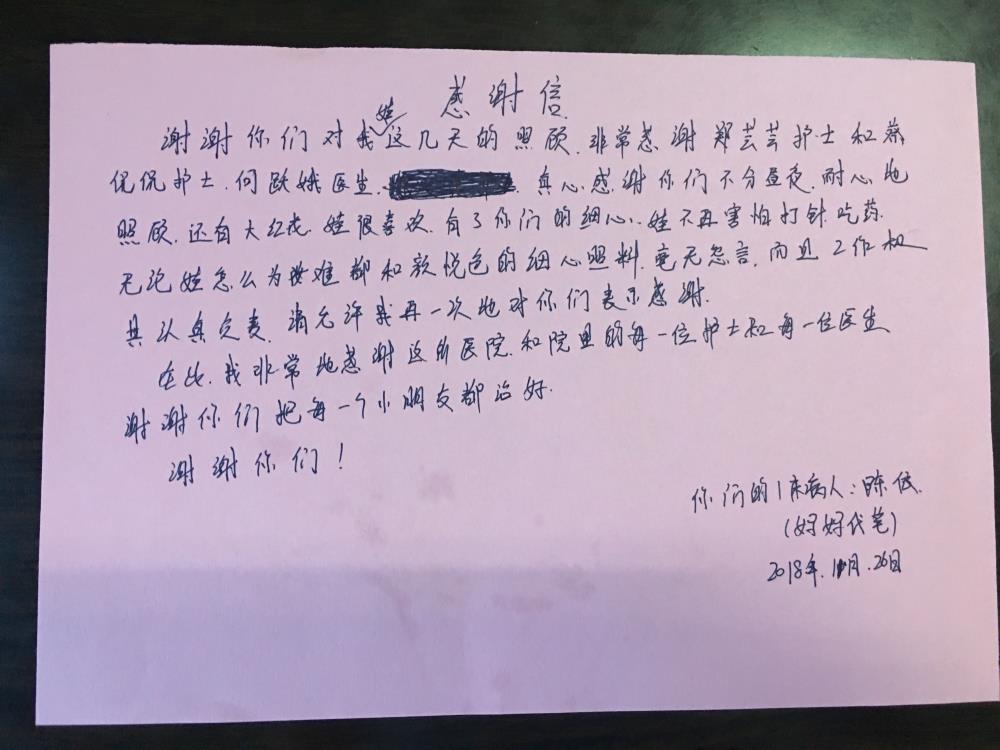 感谢信
谢谢你们对我娃这几天的照顾.非常感谢郑芸芸护士和蔡
侃侃护士.何跃娥医生. 真心感谢你们不分昼夜.耐心地
照顾.还有大红花.娃很喜欢.有了你们的细心.娃不再害怕打针吃药.
无论娃怎么为难都和颜悦色的细心照料.毫无怨言.而且工作极
其认真负责.请允许我再一次地对你们表示感谢.
在此.我非常地感谢这所医院.和院里的每一位护士和每一位医生
谢谢你们把每一个小朋友都治好.
谢谢你们!
你们的1床病人:陈
(妈妈代笔)
2018年.月.26日